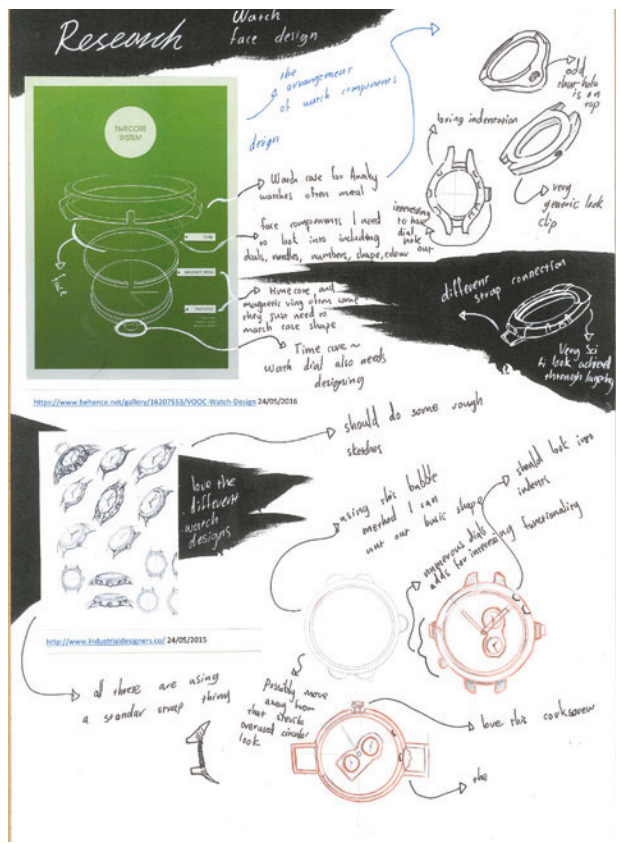 Research
Watch
face design
the
arrangement
of watch components
deign
TIMECORE
SYSTEM
Watch case for
watches often metal
face components I need
to look into including
dials, needles, numbers, shape, colour
timecore, and
magnetic ring often same
they just need to
match case shape
Time core ~
wath dial also needs
designing
odd
on
top
loving indentation
very
generic look
clip
interesting
to have
dial
out
different
strap connection
Very Sci
fi look achieved
through layering
https://www.behance.net/gallery/16207553/VOOC-Watch-Design 24/05/2016
should do some rough
sketches
love the
different
watch
designs
using this bubble
method I can
out basic shape
numerous dials
adds for interesting functionality
should look into
indents
http://www.industrialdesigners.co/ 24/05/2015
all these are using
a standar strap thing
Possibly move
away from
that
overused circular
look
love this corkscrew
the